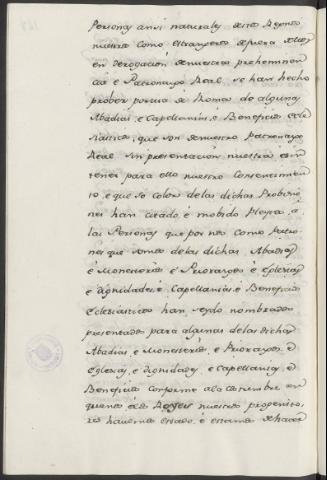 Personas ansi naturales destos Reynos
nuestros como estrangeros de fuera dellos
en derogacion de nuestra preheminen
cia e Patronazgo Real se han hecho
probeer por via de Roma de algunas
Abadias, e Capellanias, e Beneficios Ecle
siasticos, que son de nuestro Patronazgo
Real sin presentacion nuestra e sin
tener para ello nuestro Consentimien
to, e que so color de las dichas Probisio
nes han citado e mobido Pleyto, a
las Personas que por nos como Patro
nes que somos de las dichas Abadias
é Monesterios é Priorazgos é Eglesias
e dignidades é Capellanias é Beneficios
Eclesiasticos han seydo nombrados
presentados para algunas de las dichas
Abadias, e Monesterios, e Priorazgos, e
Eglesias, e dignidades, e Capellanias, e
Beneficios conforme a la costumbre en
que nos é los Reyes nuestros progenito
res havemos estado, é estamos de hacer